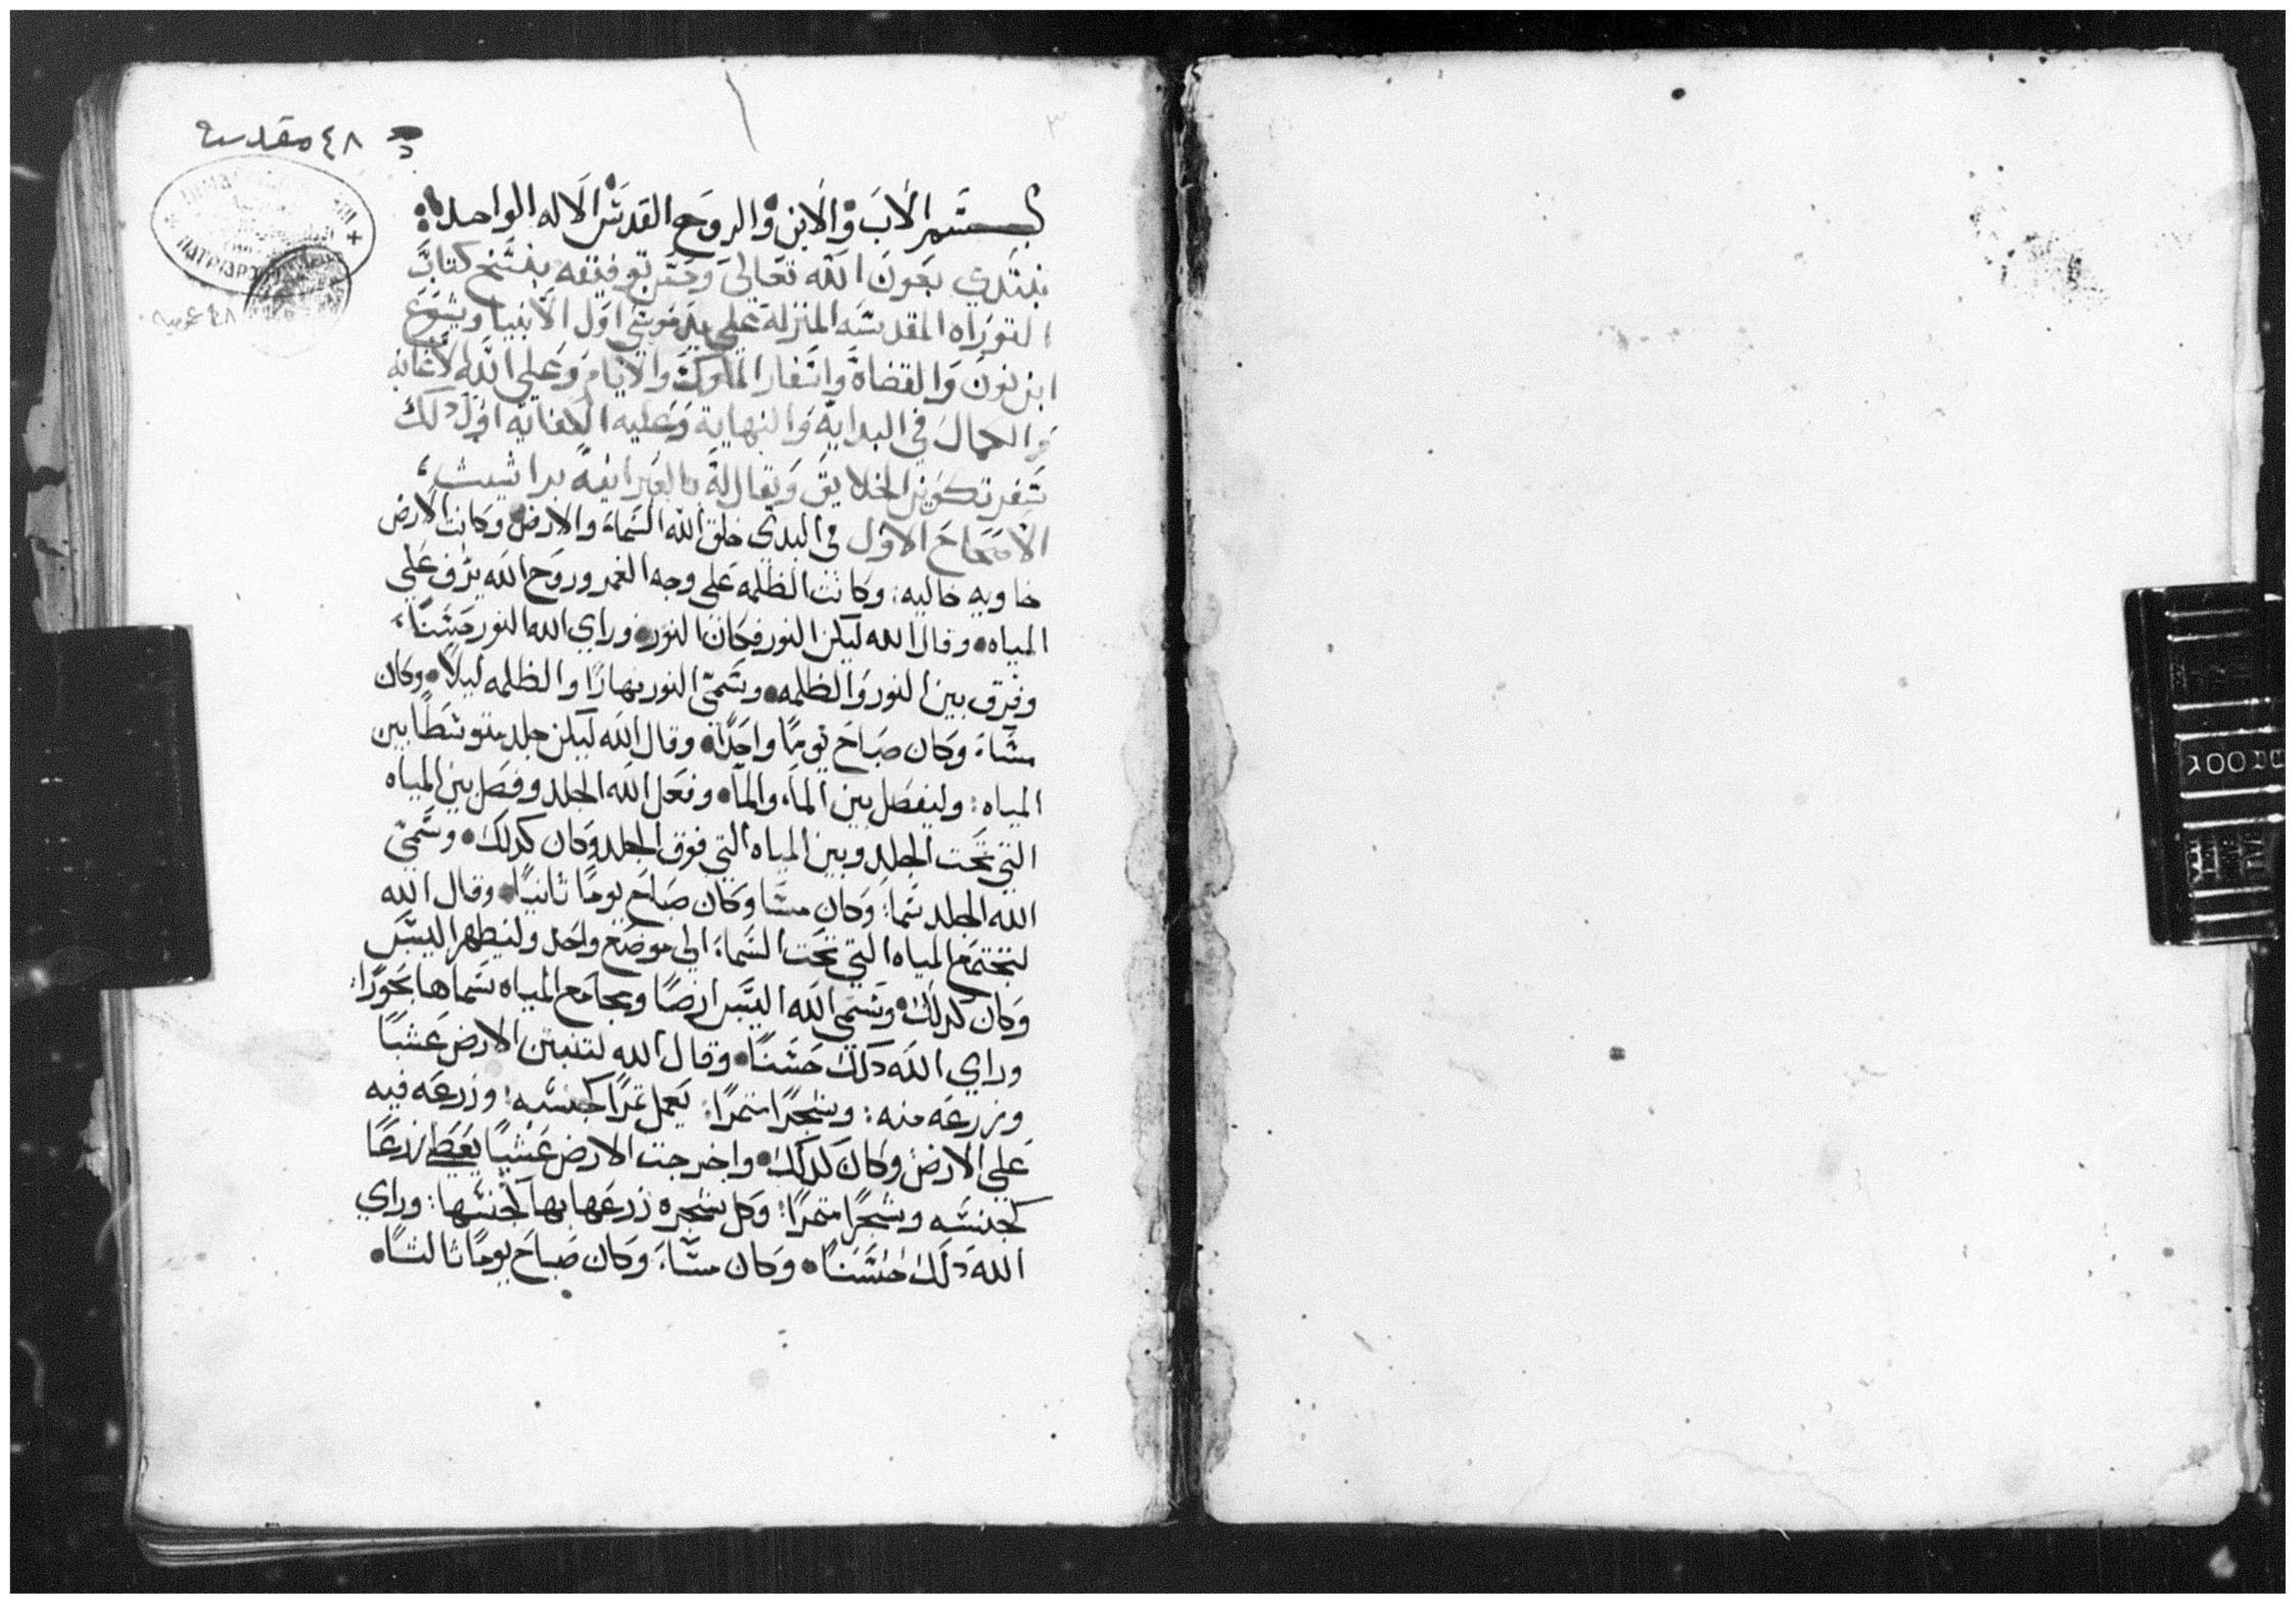 ٤٨ مقدسه
٣
بسم الاب والابن والروح القدس الاله الواحد
نبتدي بعون الله تعالى وحسن توفيقه بفتتح كتاب
التوراه المقدسه المنزلة على يد موسى اول الانبيا ويشوع
ابن نون والقضاة واسفار الملوك والايام وعلى الله الاعانه
والكمال في البداية والنهاية وعليه اول ذلك
سفر تكوين الخلايق ويقال له بالعبرانية براشيث
الاصحاح الاول في البدي خلق الله السماء والارض وكانت الارض
خاويه خاليه: وكانت الظلمه على وجه الغمر وروح الله يرف على
المياه وقال الله ليكن النور فكان النور وراي الله النور حسنًا
وفرق بين النور والظلمه وسمى النور نهارًا والظلمه ليلًا وكان
مساء وكان صباح يومًا واحدًا وقال الله ليكن جلد متوسطًا بين
المياه: وليفصل بين الماء والماء وفعل الله الجلد وفصل بين المياه
التي تحت الجلد وبين المياه التي فوق الجلد وكان كدلك وسمى
الله الجلد سما: وكان مسا وكان صباح يومًا ثانيًا وقال الله
لتجتمع المياه التي تحت السماء الى موضع واحد وليظهر اليبس
وكان كدلك وسمى الله اليبس ارضًا ومجامع المياه سماها بحورًا:
وراي الله دلك حسنًا وقال الله لتنبت الارض عشبًا
وزرعه منه: وشجرًا مثمرًا: يعمل ثمرًا كجنسه: وزرعه فيه
على الارض وكان كدلك واخرجت الارض عشبًا يعط زرعًا
كجنسه وشجرًا مثمرًا: وكل شجره زرعها بها كجنسها: وراي
الله دلك حسنًا وكان مساء وكان صباح يومًا ثالثًا